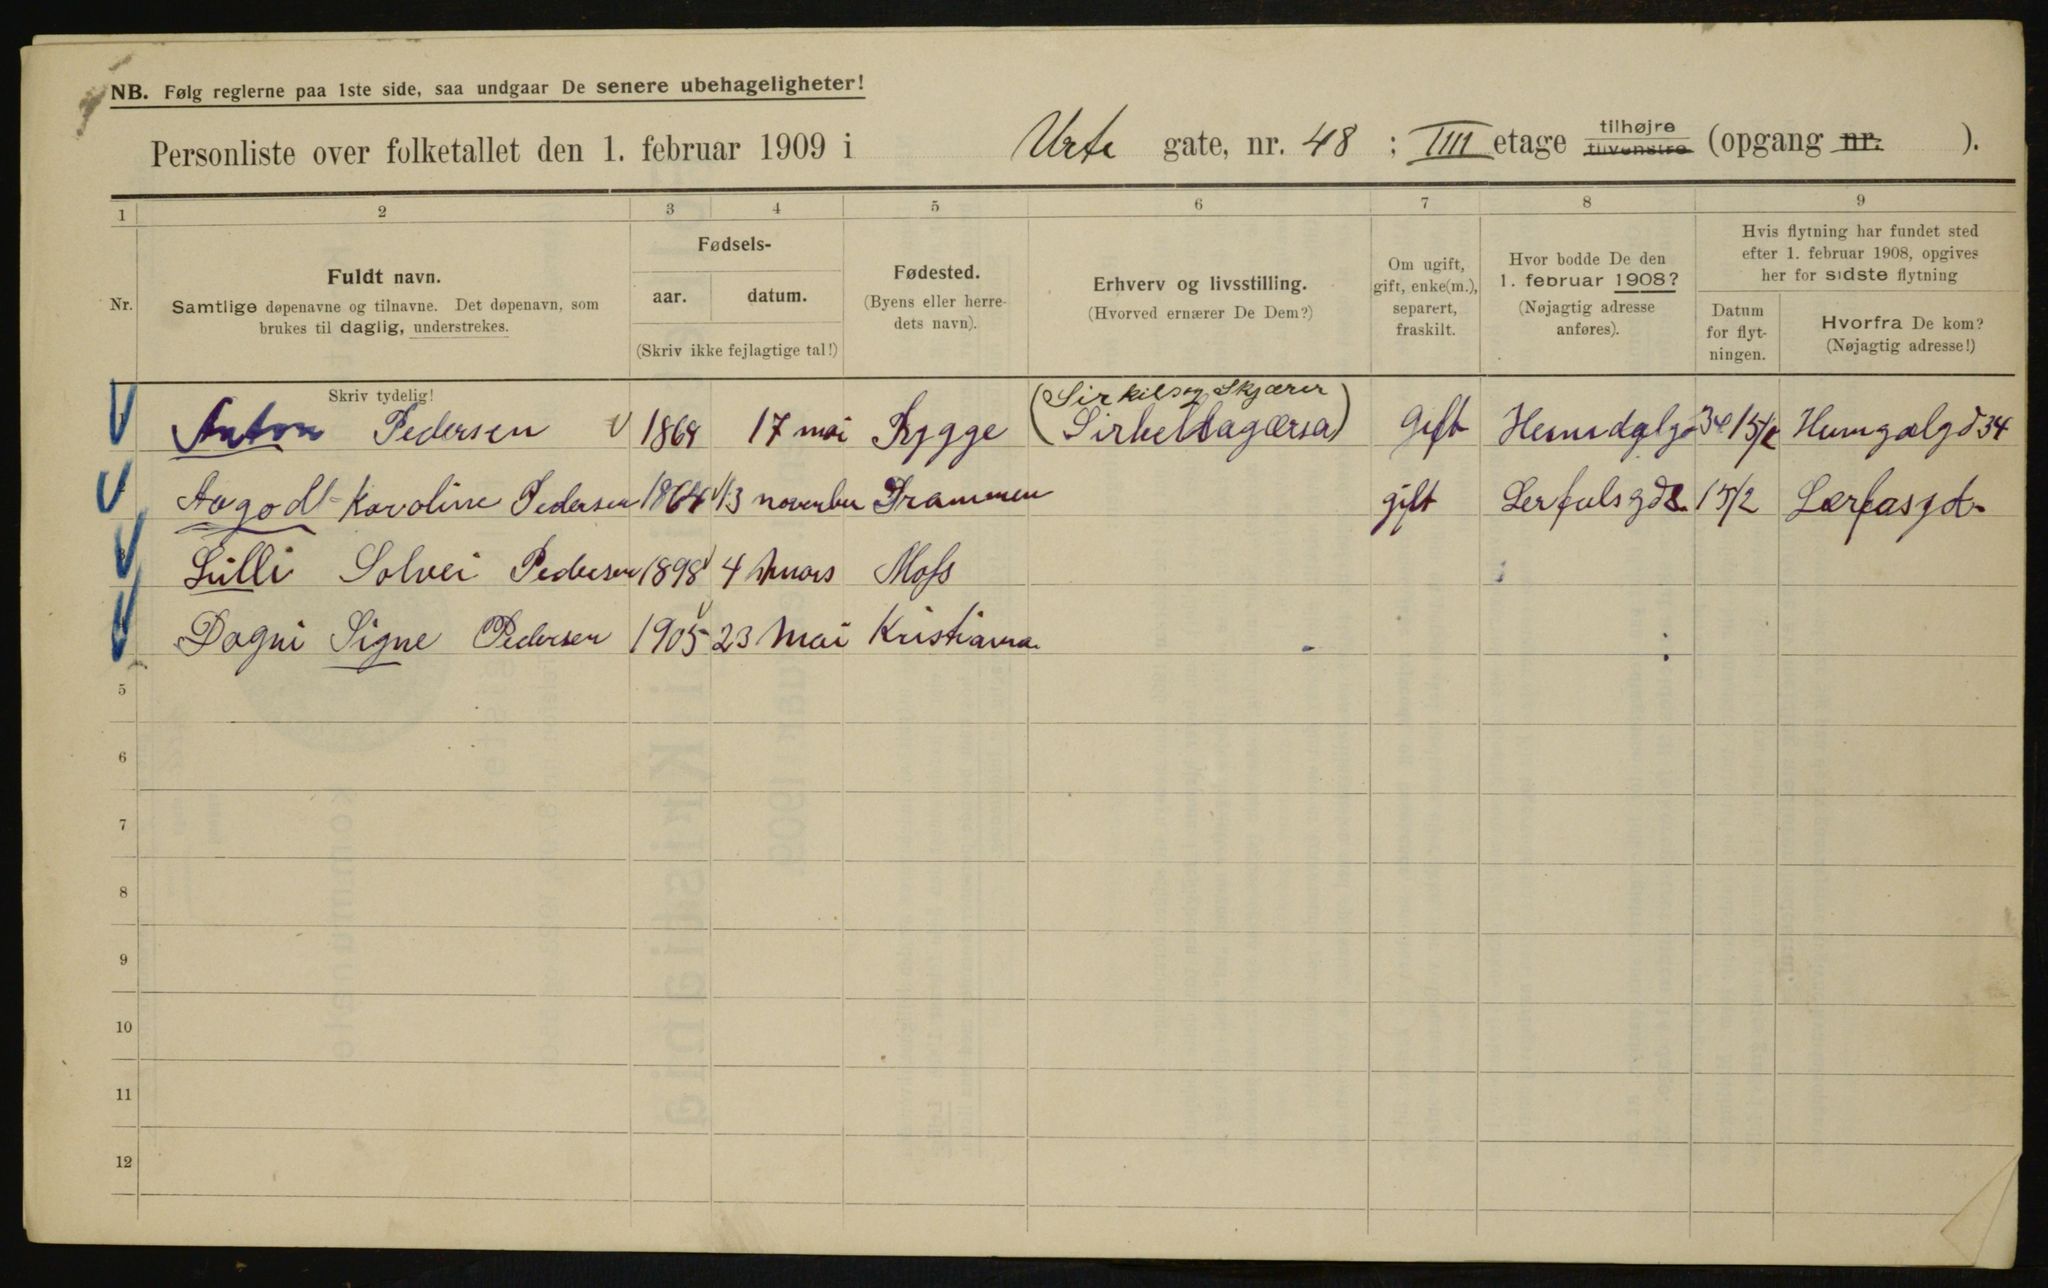 NB. Følg reglerne paa 1ste side, saa undgaar De senere ubehageligheter!
Personliste over folketallet den 1. februar 1909 i Urte gate, nr. 48 ; IIII etage tilhøjre tilvenstre (opgang nr. ).
1 2 3 4 5 6 7 8 9
Nr.
Fuldt navn.
Samtlige døpenavne og tilnavne. Det døpenavn, som
brukes til daglig, understrekes.
Skriv tydelig!
Fødsels-
aar. datum.
(Skriv ikke fejlagtige tal!)
Fødested.
(Byens eller herre-
dets navn).
Erhverv og livsstilling.
(Hvorved ernærer De Dem?)
Om ugift,
gift, enke(m.),
separert,
fraskilt.
Hvor bodde De den
1. februar 1908?
(Nøjagtig adresse
anføres).
Hvis flytning har fundet sted
efter 1. februar 1908, opgives
her for sidste flytning
Datum
for flyt-
ningen.
Hvorfra De kom?
(Nøjagtig adresse!)
(Sirkilsag Skjærer
Anton Pedersen 1864 17 mai Rygge Sirkelsagærsa) Gift Hemdalgd 34 15/2 Hemgalgd 34
Karoline Pedersen 1864 13 november Drammen gift 15/2
Lilli Solvei Pedersen 1898 4 mars Moss
Dagni Signe Pedersen 1905 23 Mai Kristiania
5
6
7
8
9
10
11
12